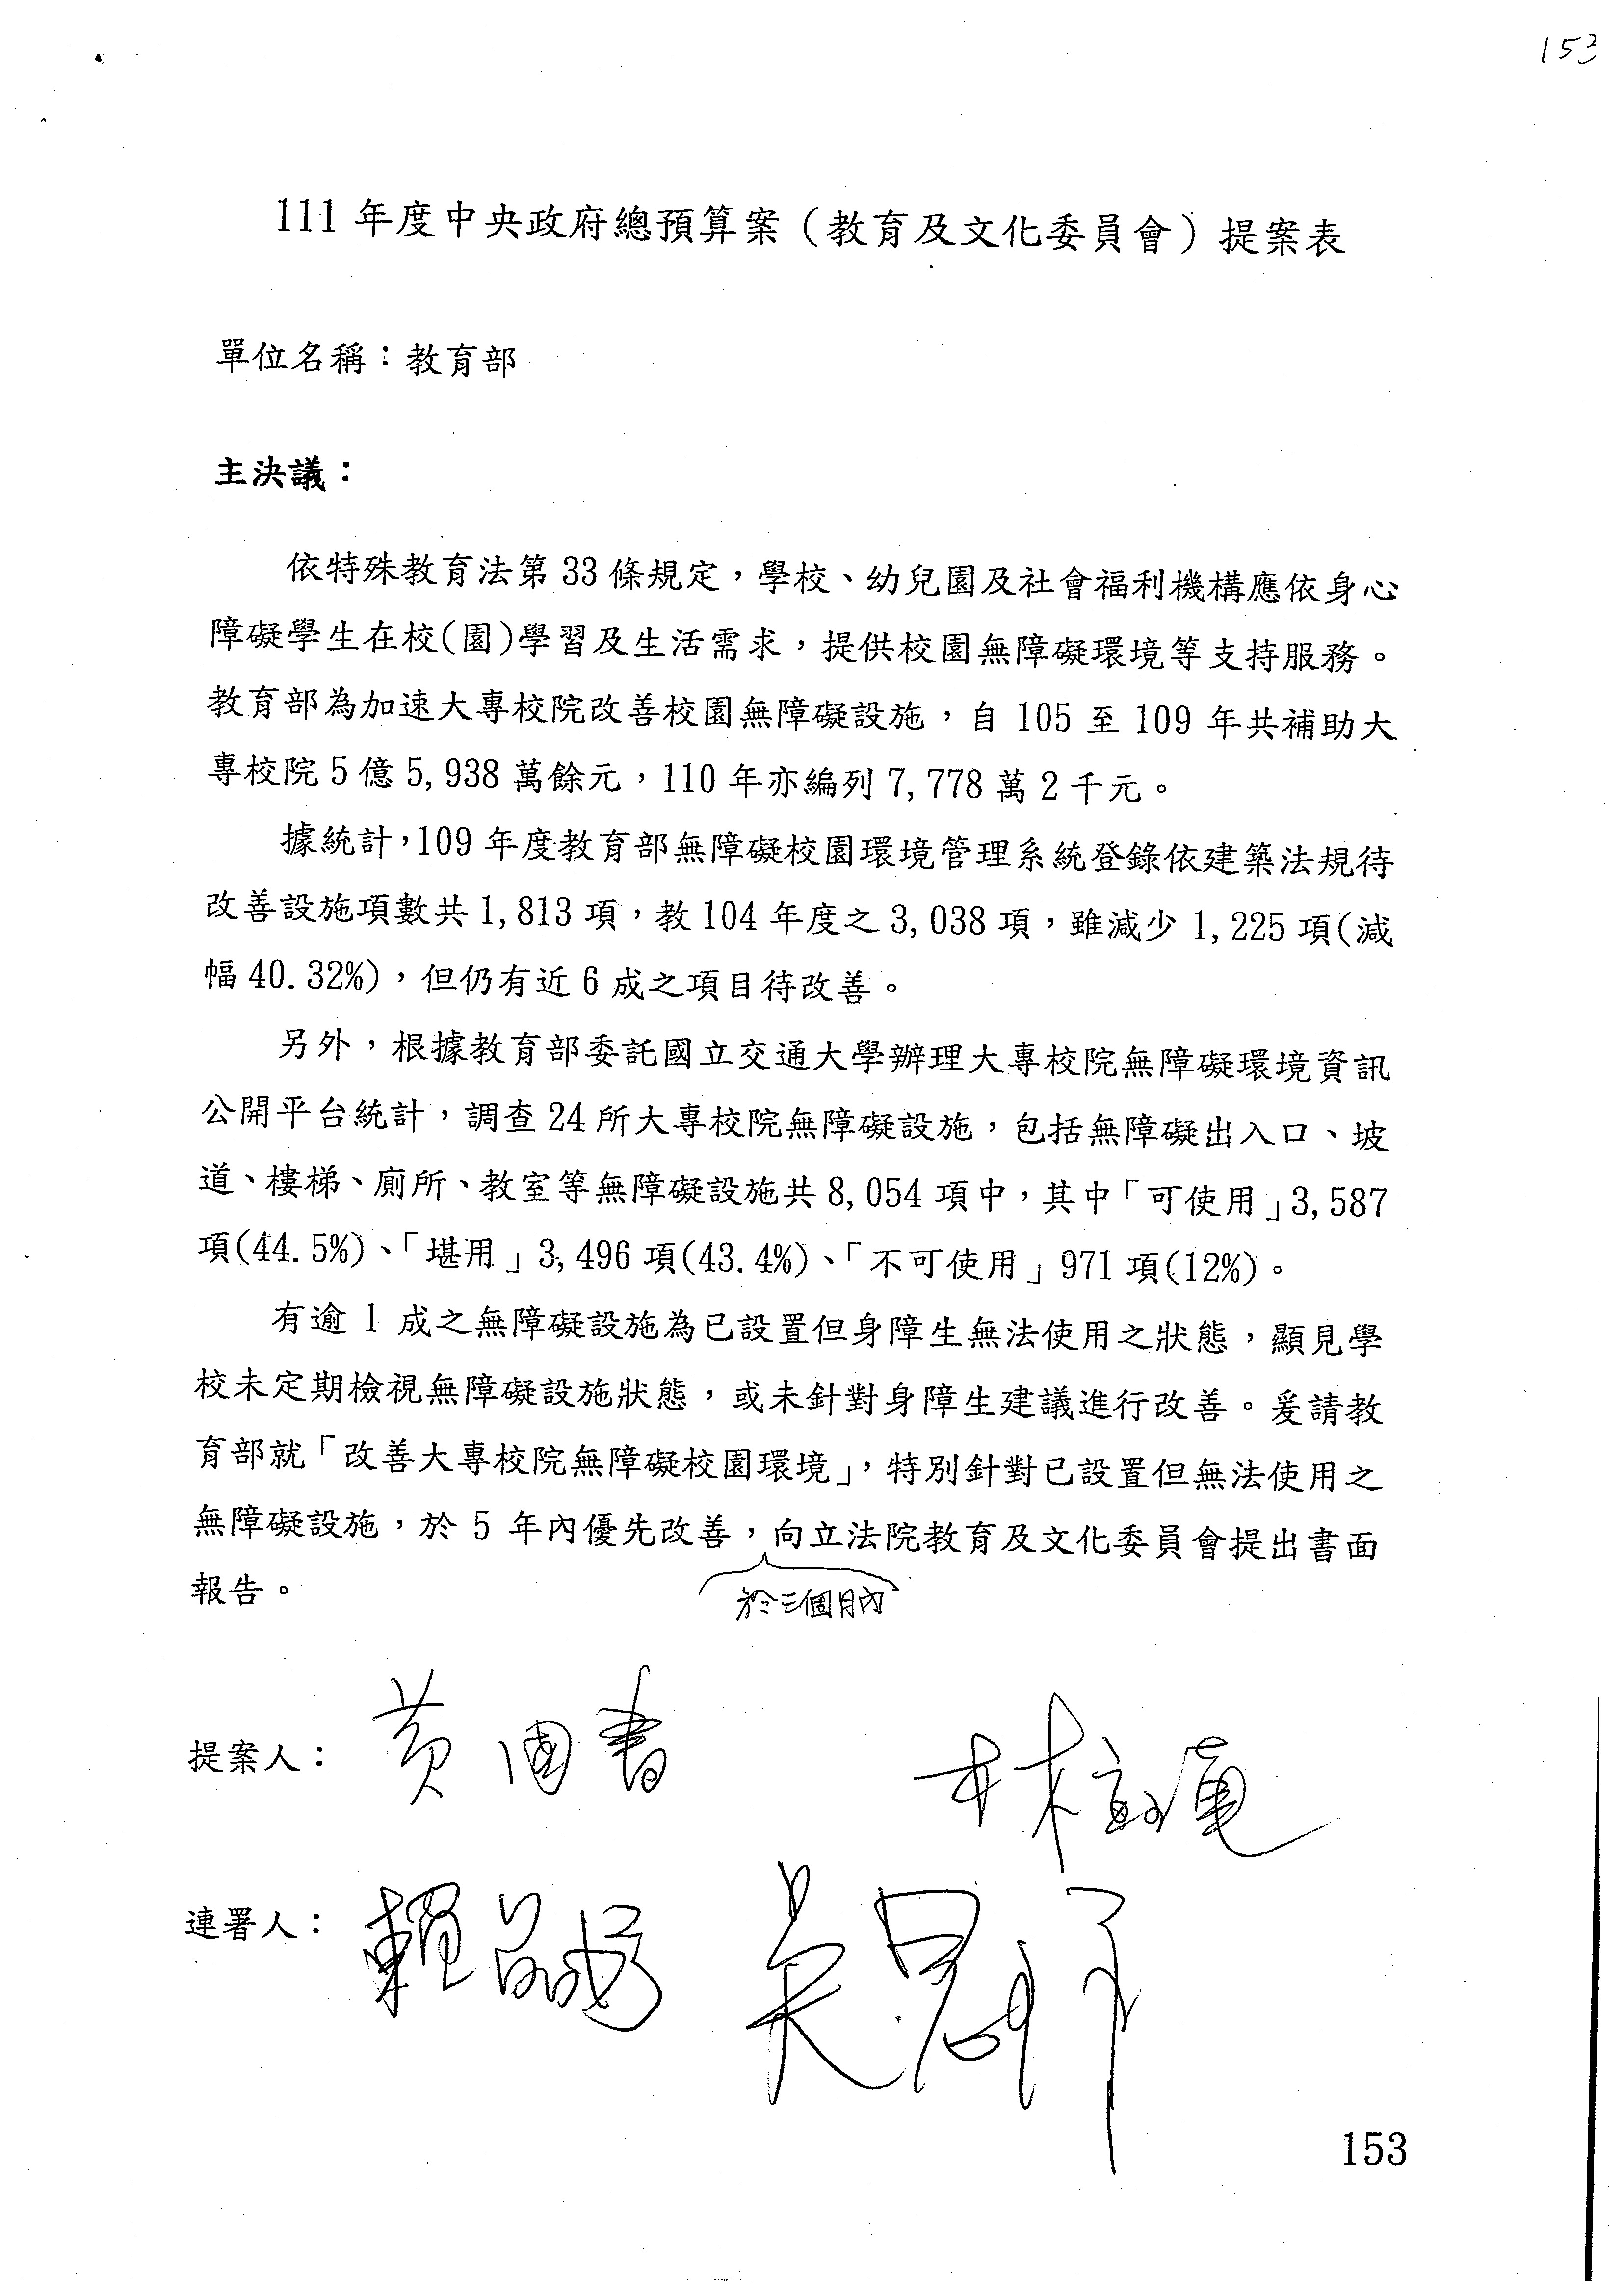 153
111 年度中央政府總預算案（教育及文化委員會）提案表
單位名稱：教育部
主決議：
依特殊教育法第 33 條規定，學校、幼兒園及社會福利機構應依身心
障礙學生在校(園)學習及生活需求，提供校園無障礙環境等支持服務。
教育部為加速大專校院改善校園無障礙設施，自 105 至 109 年共補助大
專校院 5 億 5,938 萬餘元，110 年亦編列 7,778 萬 2 千元。
據統計，109 年度教育部無障礙校園環境管理系統登錄依建築法規待
改善設施項數共 1,813 項，教 104 年度之 3,038 項，雖減少 1,225 項(減
幅 40.32%)，但仍有近 6 成之項目待改善。
另外，根據教育部委託國立交通大學辦理大專校院無障礙環境資訊
公開平台統計，調查 24 所大專校院無障礙設施，包括無障礙出入口、坡
道、樓梯、廁所、教室等無障礙設施共 8,054 項中，其中「可使用」3,587
項(44.5%)、「堪用」3,496 項(43.4%)、「不可使用」971 項(12%)。
有逾 1 成之無障礙設施為已設置但身障生無法使用之狀態，顯見學
校未定期檢視無障礙設施狀態，或未針對身障生建議進行改善。爰請教
育部就「改善大專校院無障礙校園環境」，特別針對已設置但無法使用之
無障礙設施，於 5 年內優先改善，向立法院教育及文化委員會提出書面
報告。
於三個月內
提案人：黃國書
連署人：
153